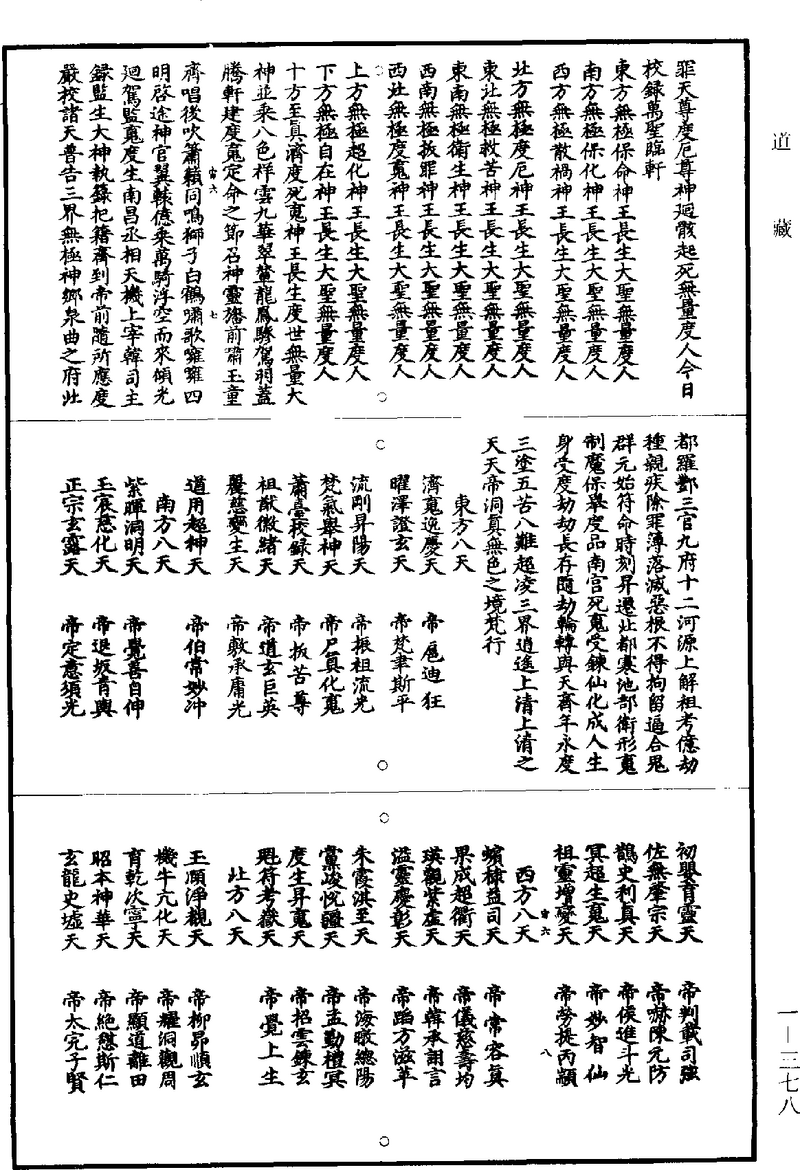 道藏
罪天尊度厄尊神廻骸起死無量度人今日
校録萬聖臨軒
東方無極保命神王長生大聖無量度人
南方無極保化神王長生大聖無量度人
西方無極散禍神王長生大聖無量度人
北方無極度厄神王長生大聖無量度人
東北無極救苦神王長生大聖無量度人
東南無極衛生神王長生大聖無量度人
西南無極拔罪神王長生大聖無量度人
西北無極度䰟神王長生大聖無量度人
上方無極超化神王長生大聖無量度人
下方無極自在神王長生大聖無量度人
十方至眞濟度死䰟神王長生度世無量大
神並乘八色祥雲九華翠輦龍鳳驂駕羽蓋
騰軒建度䰟定命之節召神靈旛前嘯玉童
齊唱後吹簫籟同鳴獅子白鶴嘯歌雍雍四
明啓途神官翼轅億乘萬騎浮空而來傾光
廻駕監䰟度生南昌丞相天機上宰韓司主
録監生大神執籙把籍齊到帝前隨所應度
嚴校諸天普告三界無極神鄉泉曲之府北
都羅酆三官九府十二河源上解祖考億劫
種親疾除罪薄落滅惡根不得拘留逼合鬼
群元始符命時刻昇遷北都寒池部衛形䰟
制魔保舉度品南宮死䰟受鍊仙化成人生
身受度劫劫長存隨劫輪轉與天齊年永度
三塗五苦八難超凌三界逍遙上清上清之
天天帝洞眞無色之境梵行
東方八天
濟䰟逸慶天 帝扈迪狂
曜澤證玄天 帝梵聿斯平
流剛昇陽天 帝振祖流光
梵氣舉神天 帝尸眞化䰟
蕭臺校録天 帝拔苦尊
祖猷徽緒天 帝道玄巨英
麗慈變生天 帝敷承庸光
道用超神天 帝伯常妙沖
南方八天
紫暉洞明天 帝覺善自伸
玉宸慈化天 帝退坂青輿
正宗玄露天 帝定意須光
初嬰育靈天 帝判載司強
佐無肇宗天 帝嚇陳元防
鵲史利真天 帝侯進斗光
冥超生䰟天 帝妙智仙
祖靈增燮天 帝勞提丙顓
西方八天
蠙棣益司天 帝常容眞
果成超衢天 帝儀慈壽均
瑛觀紫虛天 帝韓承詡言
溢靈慶彰天 帝蹈方滋革
朱霞淇至天 帝海暾總陽
黨峻悅疆天 帝孟勤檀冥
度生昇䰟天 帝招雲鍊玄
魁符考嶽天 帝覺上生
北方八天
玉頋淨觀天 帝柳昴順玄
機牛亢化天 帝耀洞觀周
育乾次寧天 帝顯道離田
昭本神華天 帝絶戀斯仁
玄龍史墟天 帝太完子賢
一—三七八